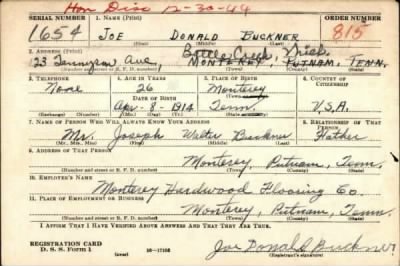 Hon Disc 12-30-44
SERIAL NUMBER 1. NAME (Print) ORDER NUMBER
1654 JOE DONALD BUCKNER 815
(First) (Middle) (Last)
Battle Creek, Mich.
2. ADDRESS (Print)
123 Tennyson Ave, MONTEREY, PUTNAM, TENN.
(Number and street or R. F. D. number) (Town) (County) (State)
3. TELEPHONE 4. AGE IN YEARS 5. PLACE OF BIRTH 6. COUNTRY OF CITIZENSHIP
None 26 Monterey
DATE OF BIRTH (Town or county)
Apr- 8- 1914 Tenn. U.S.A.
(Exchange) (Number) (Mo.) (Day) (Yr.) (State or country)
7. NAME OF PERSON WHO WILL ALWAYS KNOW YOUR ADDRESS 8. RELATIONSHIP OF THAT PERSON
Mr. Joseph Walter Buckner Father
(Mr., Mrs., Miss) (First) (Middle) (Last)
9. ADDRESS OF THAT PERSON
Monterey, Putnam, Tenn.
(Number and street or R. F. D. number) (Town) (County) (State)
10. EMPLOYER'S NAME
Monterey Hardwood Flooring Co.
11. PLACE OF EMPLOYMENT OR BUSINESS
Monterey, Putnam, Tenn.
(Number and street or R. F. D. number) (Town) (County) (State)
I AFFIRM THAT I HAVE VERIFIED ABOVE ANSWERS AND THAT THEY ARE TRUE.
REGISTRATION CARD
D. S. S. Form 1 (over) Joe Donald Buckner
(Registrant's signature)